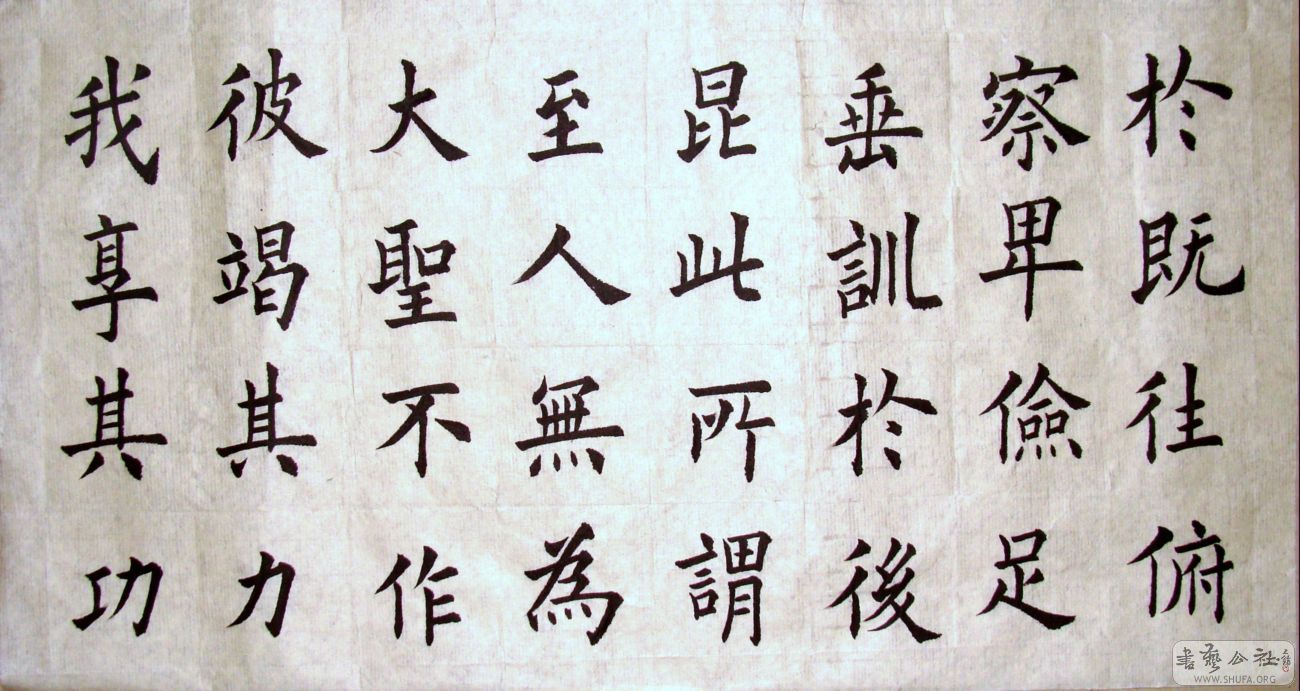 於既往俯
察卑儉足
垂訓於後
昆此所謂
至人無為
大聖不作
彼竭其力
我享其功
書藝公社
WWW.SHUFA.ORG